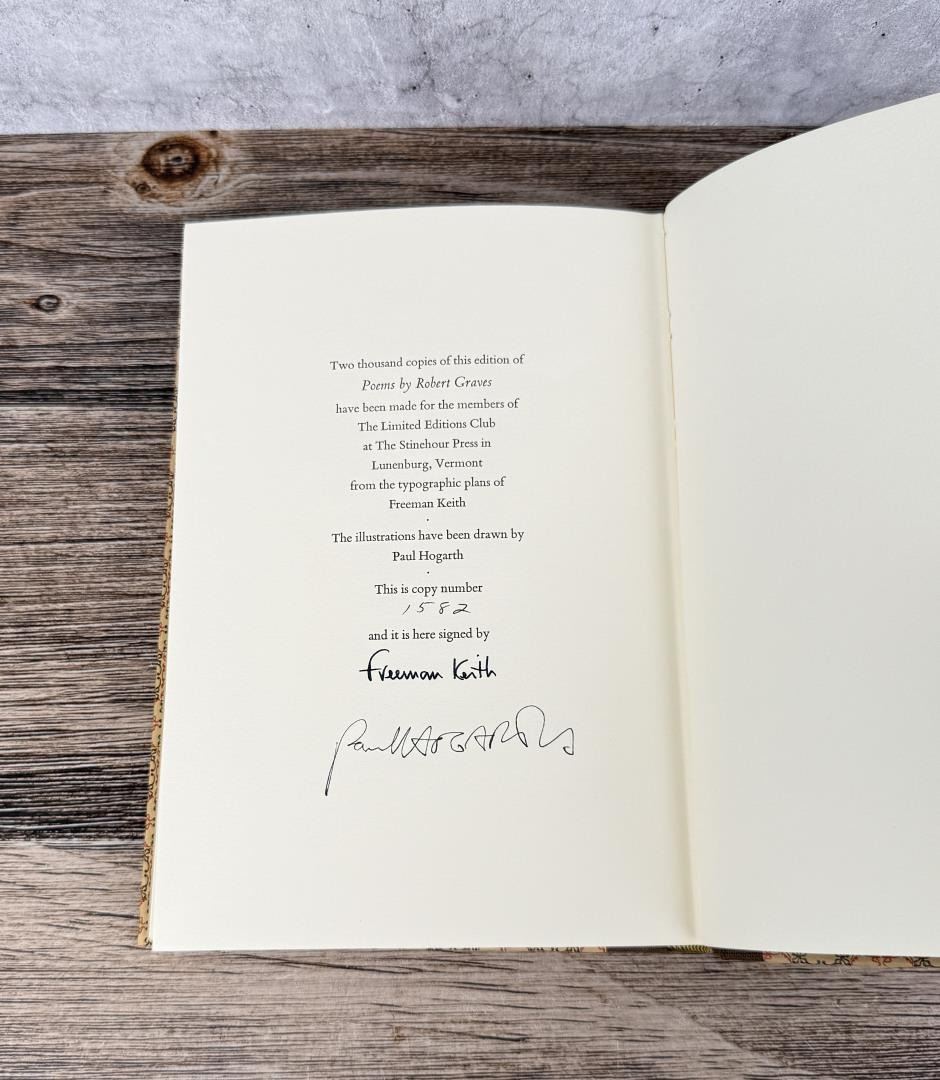 Two thousand copies of this edition of
Poems by Robert Graves
have been made for the members of
The Limited Editions Club
at The Stinehour Press in
Lunenburg, Vermont
from the typographic plans of
Freeman Keith
·
The illustrations have been drawn by
Paul Hogarth
·
This is copy number
1582
and it is here signed by
Freeman Keith
Paul Hogarth